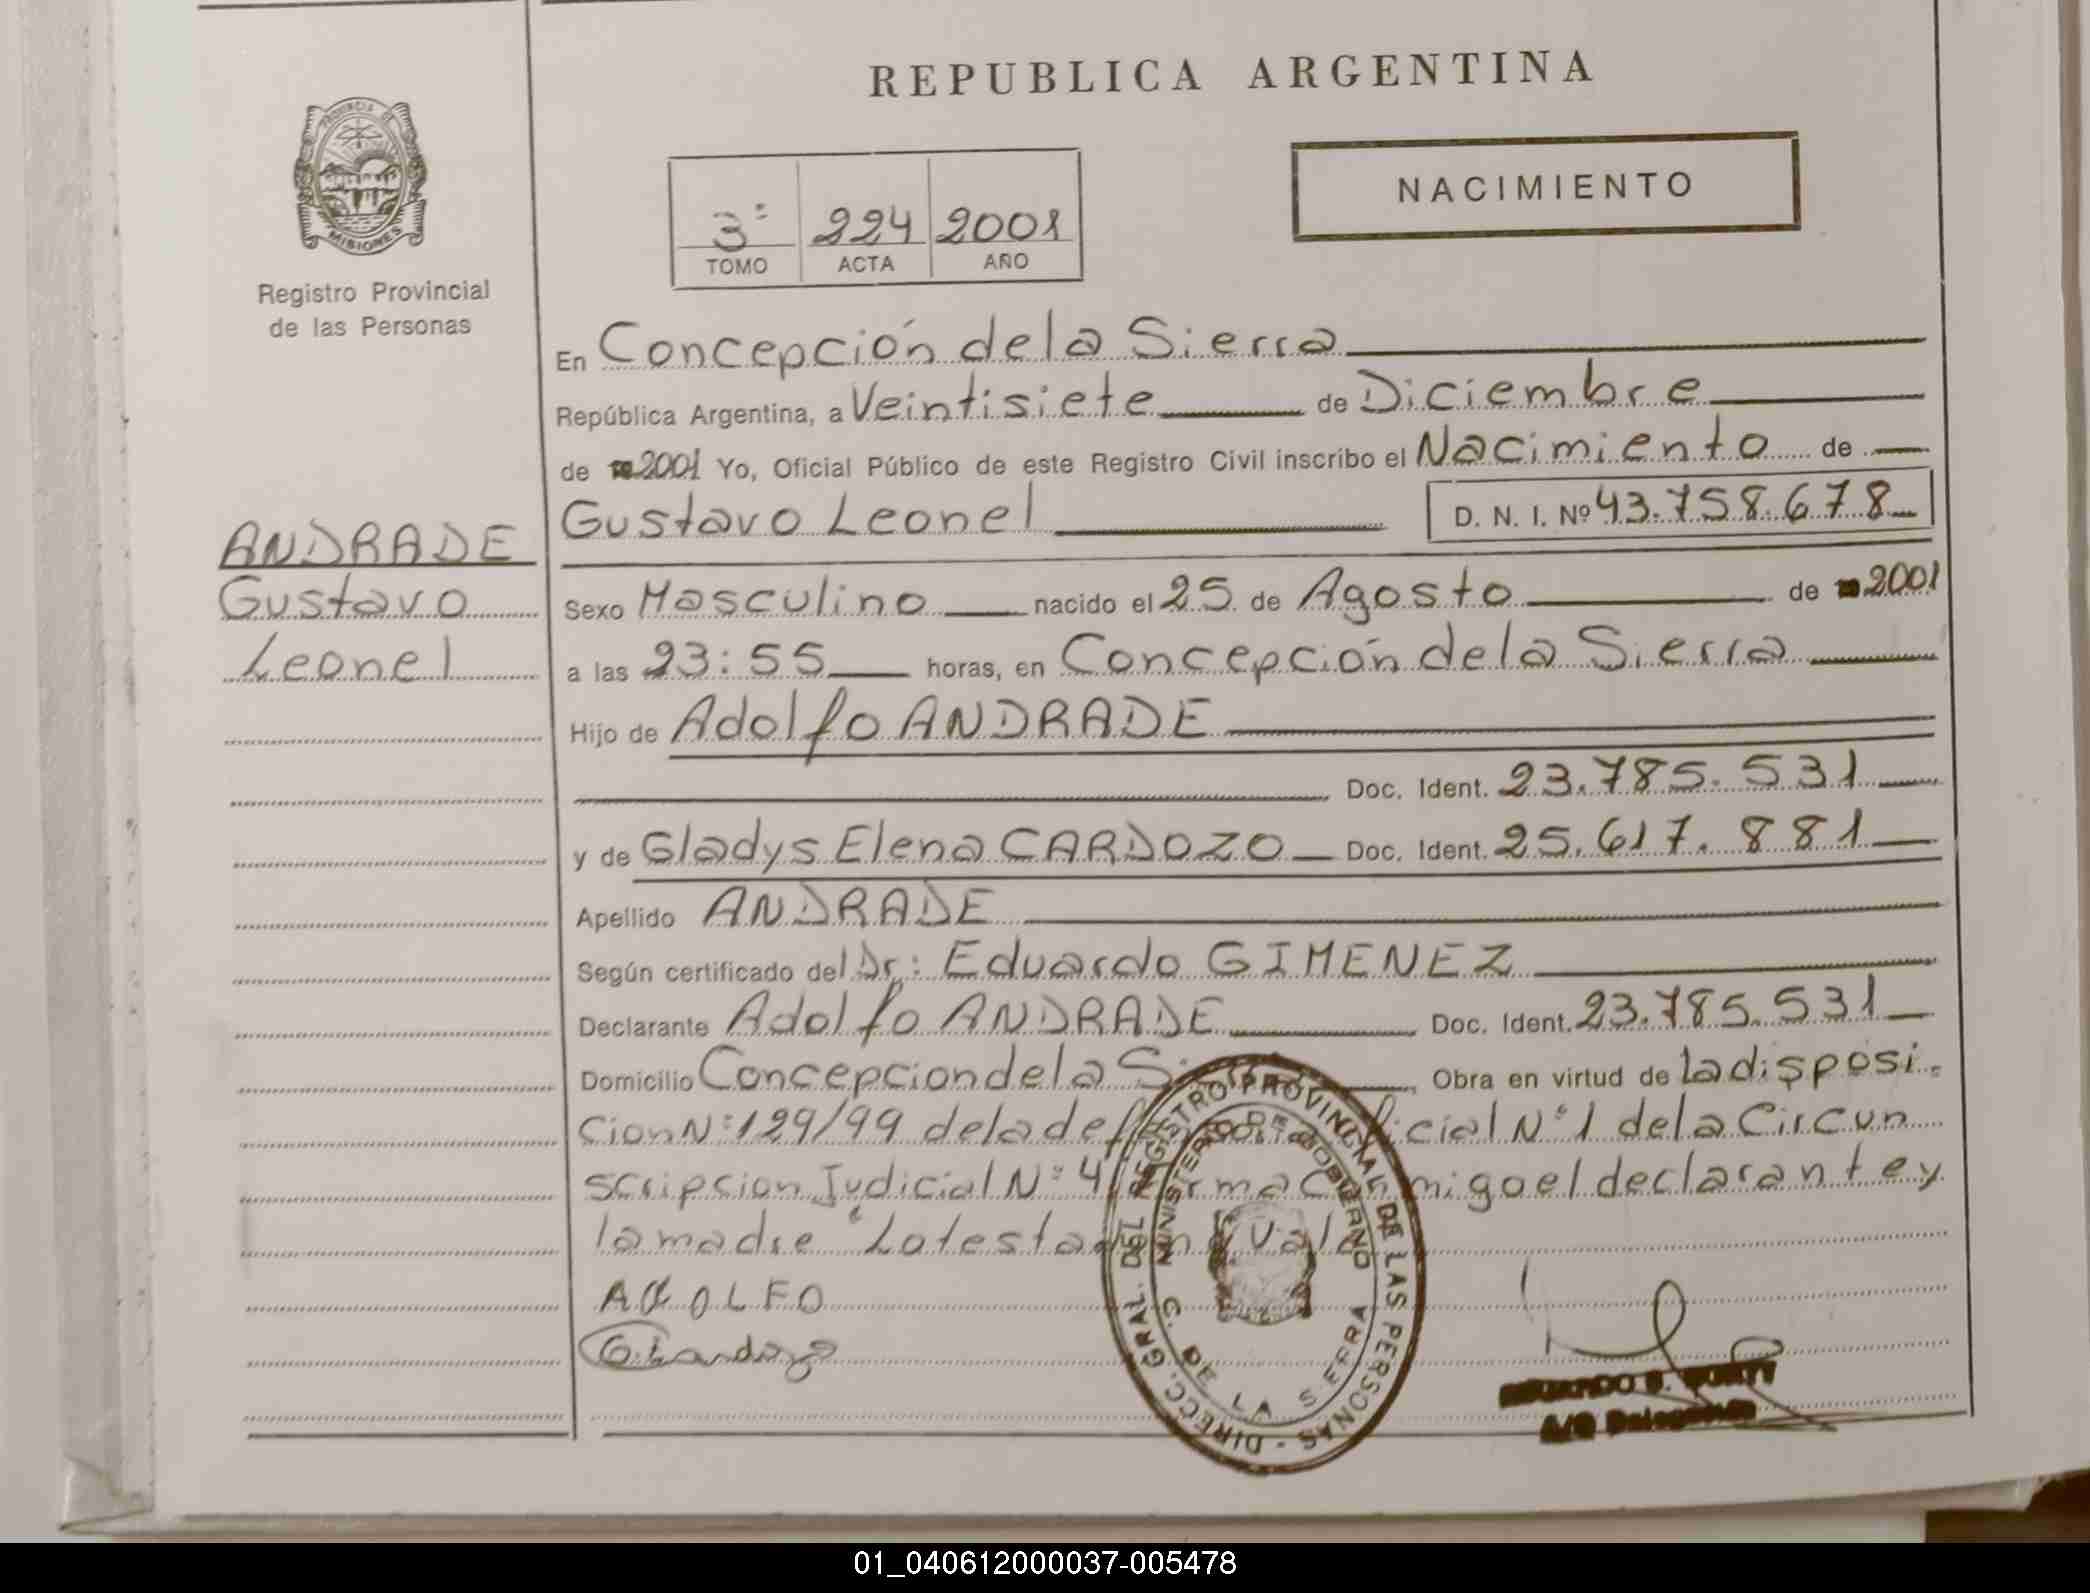 REPUBLICA ARGENTINA
PROVINCIA DE
MISIONES
Registro Provincial
de las Personas
NACIMIENTO
3º 224 2001
TOMO ACTA AÑO
En Concepción de la Sierra
República Argentina, a Veintisiete de Diciembre
de 2001 Yo, Oficial Público de este Registro Civil inscribo el Nacimiento de
Gustavo Leonel D. N. I. Nº 43.758.678
ANDRADE
Gustavo
Leonel
Sexo Masculino nacido el 25 de Agosto de 2001
a las 23:55 horas, en Concepción de la Sierra
Hijo de Adolfo ANDRADE
Doc. Ident. 23.785.531
y de Gladys Elena CARDOZO Doc. Ident. 25.617.881
Apellido ANDRADE
Según certificado del Dr: Eduardo GIMENEZ
Declarante Adolfo ANDRADE Doc. Ident. 23.785.531
Domicilio Concepcion de la Obra en virtud de la disposi-
cion Nº 129/99 de la Nº 1 de la Circun
scripcion Judicial Nº 4 migo el declarante y
la madre
ADOLFO
G. Cardozo
DIRECC. GRAL. DEL REGISTRO PROVINCIAL DE LAS PERSONAS -
MINISTERIO DE GOBIERNO
C. DE LA SIERRA
A/C
01_040612000037-005478